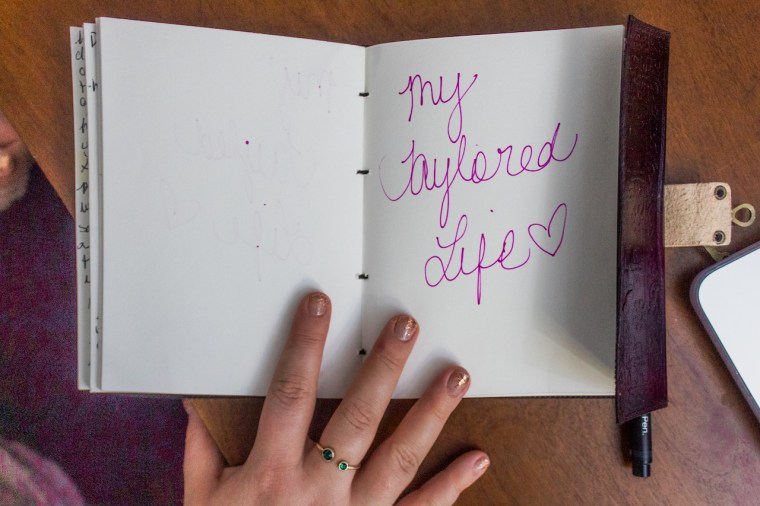 My
Taylored
Life
Pen.